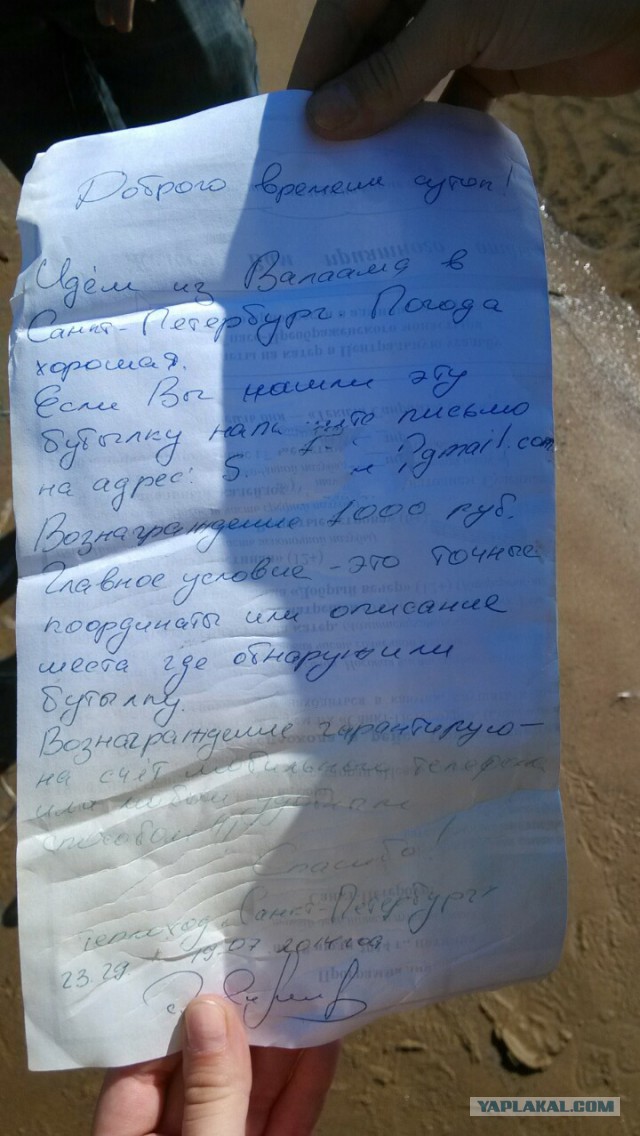 Доброго времени суток!
Идём из Валаама в
Санкт-Петербург. Погода
хорошая.
Если Вы нашли эту
бутылку напи письмо
на адрес: S. @gmail.com
Вознаграждение 1000 руб.
Главное условие - это точные
координаты или описание
места где обнаружили
бутылку.
Вознаграждение гарантирую -
на счёт мобильного телефона
или любым другим
способом
Спасибо!
теплоход "Санкт-Петербург"
23.29. 19.07
YAPLAKAL.COM